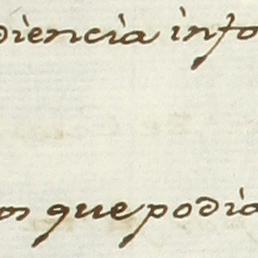 diencia info
os que podia